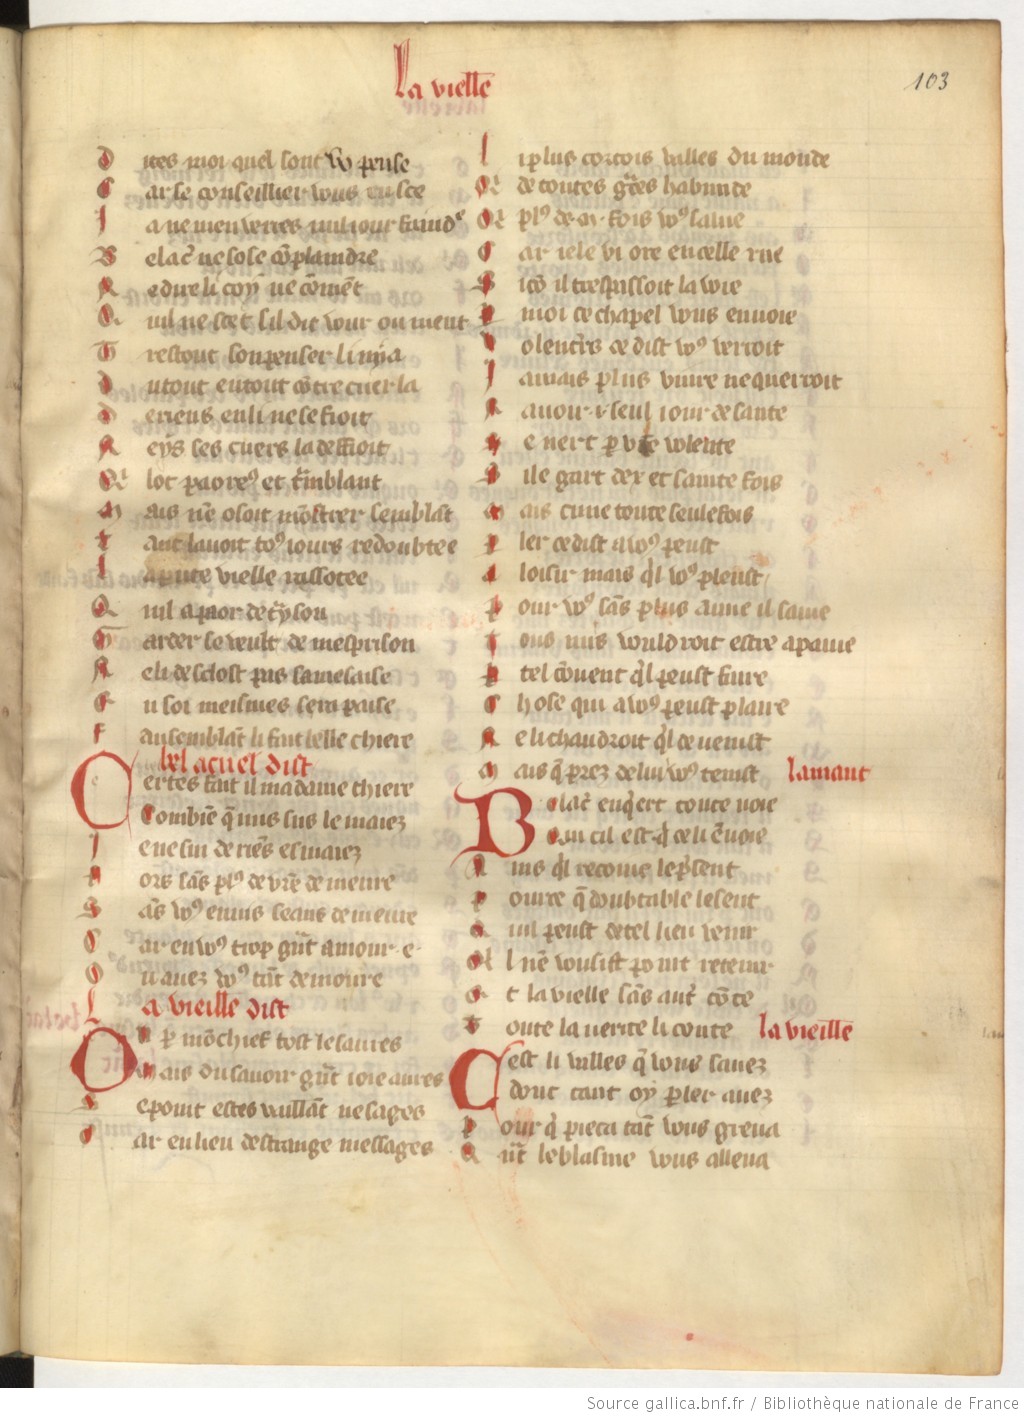 La vielle
103
Dites moi quel sont vo pense
Car se conseillier vous en sce
Ja ne men verres nul iour faindᵉ
Belac̃ ne sose cõplaindre
Redure li coy ne cõmẽt
Quil ne scet sil dit voir ou ment
Trestout son penser li nya
Dutout en tout cõtre cuer la
De riens en li ne se fioit
Neys ses cuers la deffioit
Qlot paoreꝰ et tr̃mblant
Mais nẽ osoit mõstrer semblãt
Tant lauoit toꝰ iours redoubtee
La pute vielle rassotee
Quil a paor de tr̃yson
Garder se veult de mesprison
Ne li desclost pas samesaise
En soi meismes sen rapaise
F ausemblãt li fait lelle chiere
bel acuel dist
Certes fait il ma dame chiere
Combiẽ q̃ mis sus le maiez
Ie ne sui de riẽs esmaiez
Fors sãs plꝰ de vr̃e demeure
Sãs vꝰ enuis seans demeure
Car en vꝰ trop gñt amour e
Ou auez vꝰ tãt demoure
La vieille dist
Ou p̱ mõ chief tost le saures
Mais du sauoir gñt ioie aures
Se point estes vaillãt ne sages
Car en lieu destrange messages
Li plus cortois valles du monde
Q de toutes gr̃es habunde
Q plꝰ de .m. fois vꝰ salue
Car ie le vi ore en celle rue
Sicõ il trespassoit la voie
P moi ce chapel vous enuoie
Volentr̃s ce dist vꝰ verroit
Iamais plus viure ne querroit
N auoir .i. seul iour de sante
Se nert p vr̃e volente
Si le gart dex et sainte fois
Mais cune toute seule fois
Pler ce dist a vꝰ peust
A loisir mais ql vꝰ pleust
Pour vꝰ sãs plus aime il sa vie
Tous nus vouldroit estre a pauie
P tel cõuent ql peust faire
Chose qui a vꝰ peust plaire
Ne li chaudroit ql deuenist
Mais q̃ prez de lui vꝰ tenist
lamant
Belac̃ enq̃ert toute uoie
Qui cil est q̃ ce li ẽuoie
Ains ql recoiue le p̃sent
Pour q̃ doubtable le sent
Quil peust de tel lieu venir
Ql nẽ voulist point retenir
Et la vielle sãs autr̃ cõte
Toute la uerite li conte
la vieille
Cest li valles q̃ vous sauez
Dont tant oy p̱ler auez
Pour q̃ pieca tãt vous greua
Qñt le blasme vous alleua
Source gallica.bnf.fr / Bibliothèque nationale de France